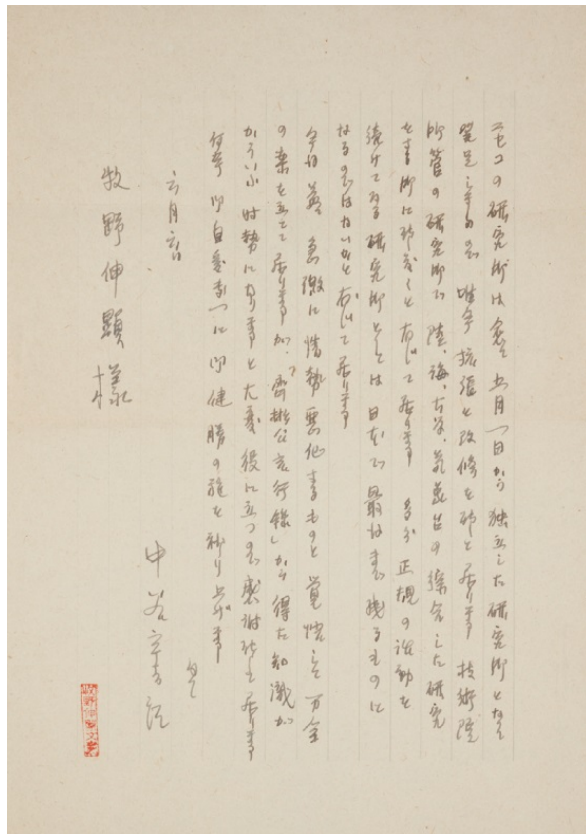 ニセコの研究所は愈々五月一日から独立した研究所となつて
発足しましたので 唯今拡張と改修を致して居ります 技術院
所管の研究所で陸、海、大学、気象台の綜合した研究
をする所に致度くと存じて居ります 多分正規の活動を
続けてゐる研究所としては日本で最後まで残るものに
なるのではないかと存じて居ります
今日蓋 急激に情勢悪化するものと覚悟して万全
の策を立てて居りますが、「齊彬公言行録」から得た知識が
かういふ時勢になりますと大変役に立つので感謝致して居ります
何卒御自愛専一に御健勝の程を祈り上げます
六月六日
中谷宇吉郎
牧野伸顕様